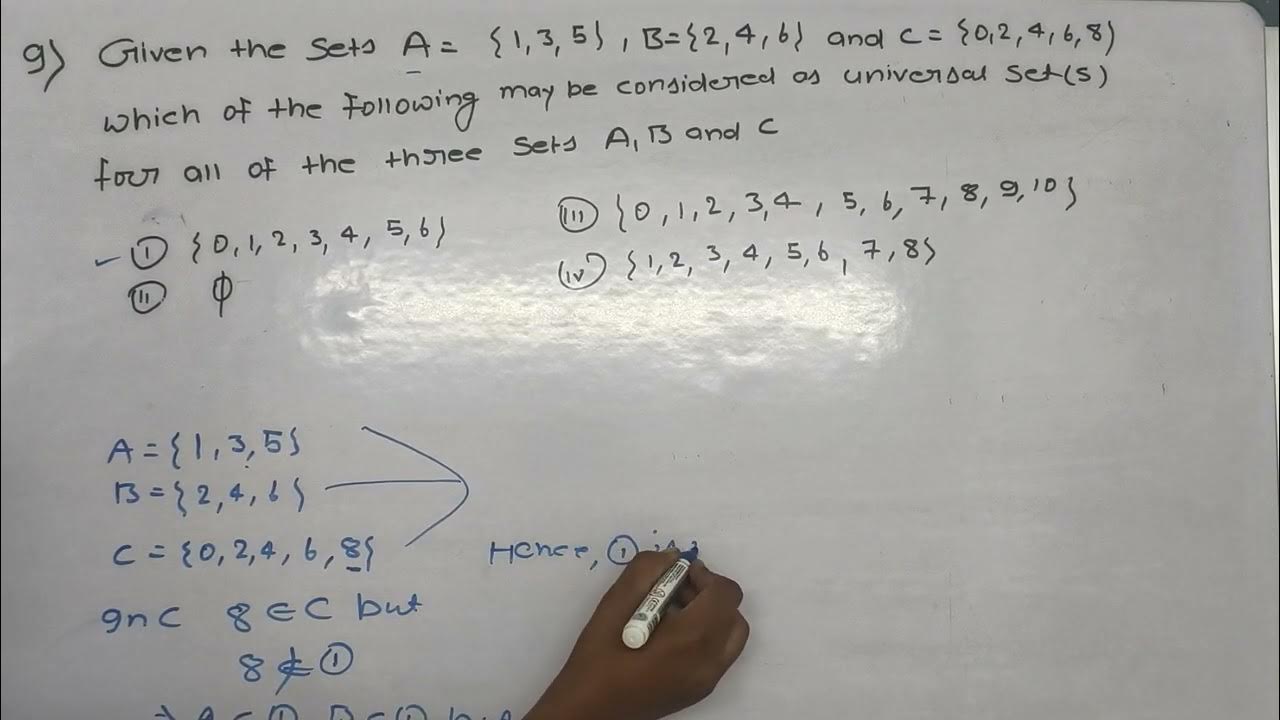 9) Given the sets A = {1, 3, 5}, B = {2, 4, 6} and C = {0, 2, 4, 6, 8}
which of the following may be considered as universal set(s)
for all of the three sets A, B and C
(i) {0, 1, 2, 3, 4, 5, 6}
(ii) ϕ
(iii) {0, 1, 2, 3, 4, 5, 6, 7, 8, 9, 10}
(iv) {1, 2, 3, 4, 5, 6, 7, 8}
A = {1, 3, 5}
B = {2, 4, 6}
C = {0, 2, 4, 6, 8}
Hence, (i) is
In C 8 ∈ C but
8 ∉ (i)